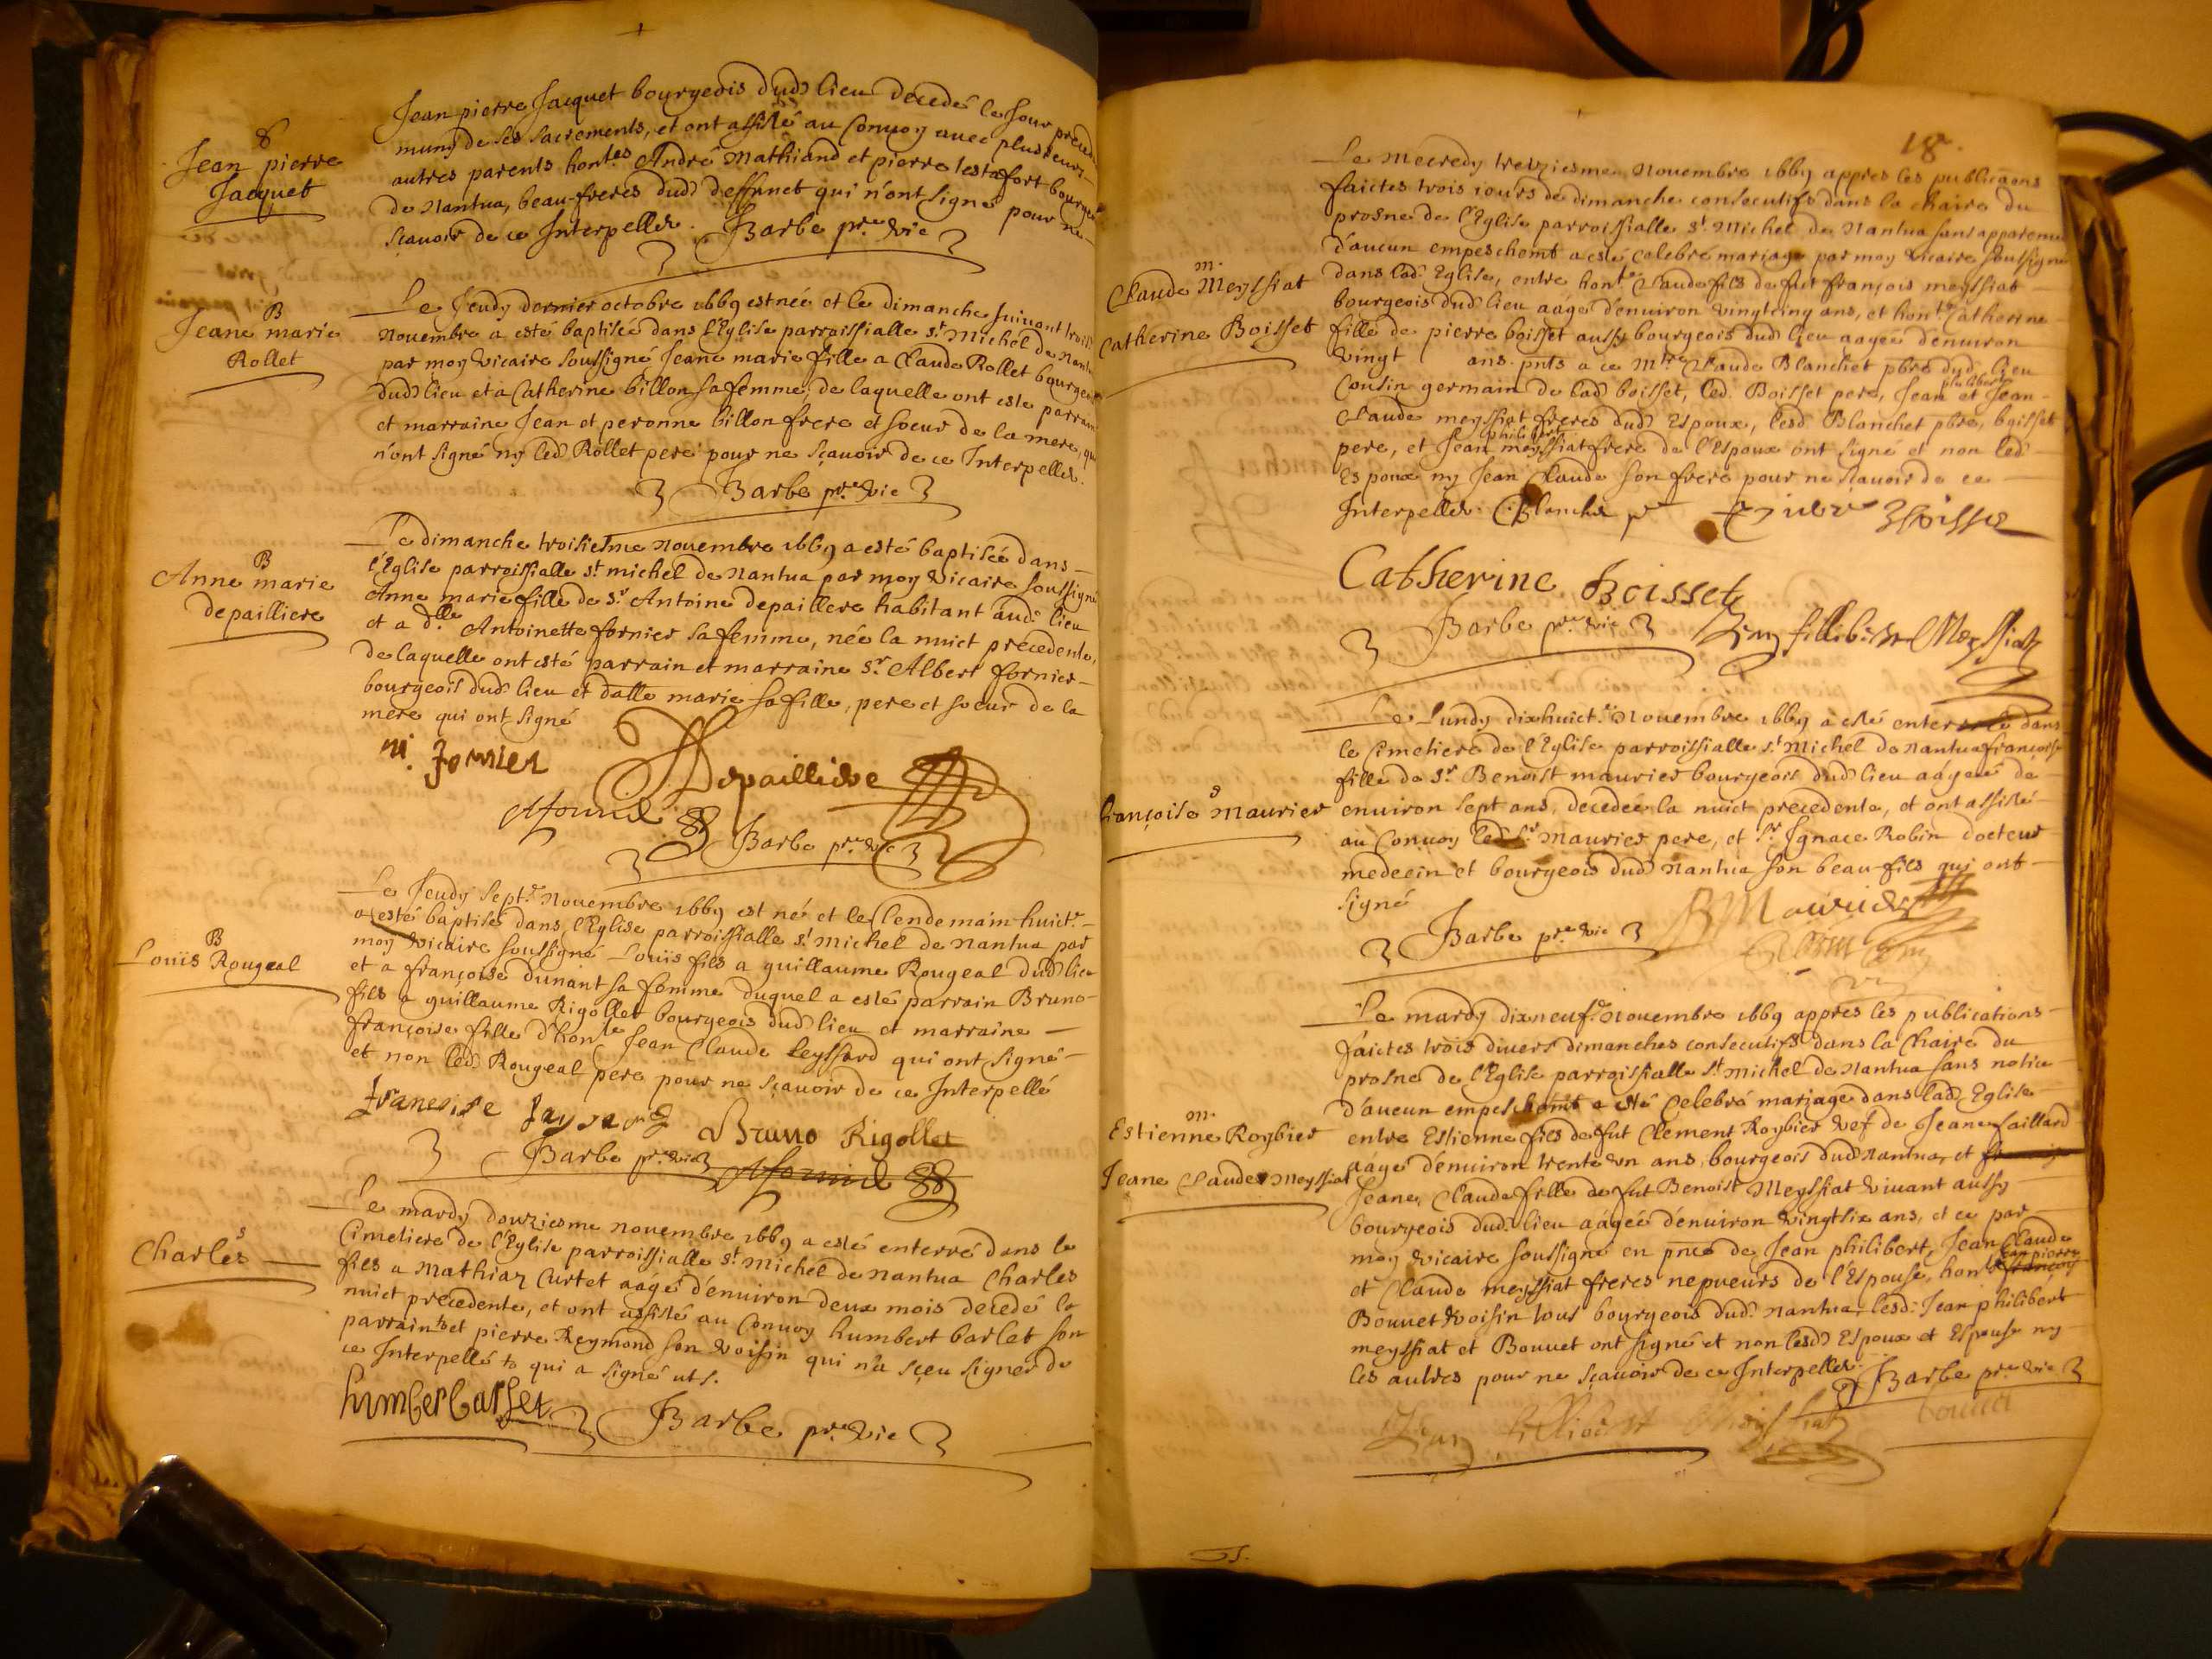 8
Jean pierre
Jacquet
Jean pierre Jacquet bourgeois dud lieu decedé le Jour preced
muny de ses sacrements, et ont assisté au Conuoy auec plusieurs
autres parents hontes André Mathiand et pierre testafort bourge
de Nantua, beau-freres dud deffunct qui n'ont signé pour ne
sçauoir de ce Interpelles. Barbe pre vic
B
Jeane marie
Rollet
Le Jeudy dernier octobre 1669 est née et le dimanche suiuant trois
Nouembre a esté baptisée dans l'Eglise parroissialle st Michel de Nant
par moy vicaire soussigné Jeane marie fille a Claude Rollet bourgeo
dud lieu et a Catherine billon sa femme, de laquelle ont este parrain
et marraine Jean et peronne billon frere et soeur de la mere, qui
n'ont signé ny led Rollet pere pour ne sçauoir de ce Interpelles.
Barbe pre vic
B
Anne marie
depailliere
Le dimanche troisiesme Nouembre 1669 a esté baptisée dans
l'Eglise parroissialle st michel de Nantua par moy vicaire soussigné
Anne marie fille de sr Antoine depaillere habitant aud. lieu
et a dlle Antoinette fornier sa femme, née la nuict precedente,
de laquelle ont esté parrain et marraine sr Albert fornier
bourgeois dud lieu et dalle marie sa fille, pere et soeur de la
mere qui ont signé
m. fornier
Depailliere
Afornier
Barbe pre vic
B
Louïs Rougeal
Le Jeudy septe Nouembre 1669 est né et le lendemain huicte
a esté baptisé dans l'Eglise parroissialle st Michel de Nantua par
moy vicaire soussigné Louïs fils a guillaume Rougeal dud lieu
et a françoise dunant sa femme duquel a esté parrain Bruno
fils a guillaume Rigollet bourgeois dud lieu et marraine
françoise fille d'honle Jean Claude leyssard qui ont signé
et non led Rougeal pere pour ne sçauoir de ce Interpellé
francoise
Bruno Rigollet
Barbe pre vic
Afornier
s
Charles
Le mardy douziesme nouembre 1669 a esté enterré dans le
Cimetiere de l'Eglise parroissialle st Michel de Nantua Charles
fils a Mathiaz Curtet aagé d'enuiron deux mois decedé la
nuict precedente, et ont assisté au Conuoy humbert barlet son
parrain et pierre Reymond son voisin qui n'a sçeu signer de
ce Interpellé to qui a signé uts.
humber barlet
Barbe pre vic
18.
m.
Claude Meyssiat
Catherine Boisset
Le Mecredy treiziesme Nouembre 1669 appres les publicaons
faictes trois iours de dimanche consecutifs dans la chaire du
prosne de l'Eglise parroissialle st. Michel de Nantua sans apparence
d'aucun empeschemt a esté celebré mariage par moy vicaire soussigné
dans lad Eglise, entre honle Claude fils de fut françois meyssiat
bourgeois dud lieu aagé d'enuiron vingtcinq ans, et honle Catherine
fille de pierre boisset aussy bourgeois dud lieu aagée d'enuiron
vingt ans. pnts a ce Mre Claude Blanchet pbre dud. lieu
Cousin germain de lad boisset, led. Boisset pere, Jean philibert et Jean
Claude meyssiat freres dud Espoux, lesd. Blanchet pbre, boisset
pere, et Jean philibert meyssiat frere de l'Espoux ont signé et non led
Espoux ny Jean Claude son frere pour ne sçauoir de ce
Interpelles. C. Blanchet pre
Catherine Boisset
Barbe pre vic Jean fillibert Meyssiat
s
françoise Maurier
Le Lundy dixhuicte Nouembre 1669 a esté enterrée dans
le Cimetiere de l'Eglise parroissialle st Michel de Nantua françoise
fille de sr Benoist maurier bourgeois dud lieu aagée de
enuiron sept ans, decedée la nuict precedente, et ont assisté
au Conuoy led sr Maurier pere, et sr Ignace Robin docteur
medecin et bourgeois dud Nantua son beau-fils qui ont
signé
Barbe pre vic
BMaurier
m.
Estienne Roybier
Jeane Claude Meyssiat
Le mardy dixneufe Nouembre 1669 appres les publications
faictes trois diuers dimanches consecutifs dans la Chaire du
prosne de l'Eglise parroissialle st Michel de Nantua sans notice
d'aucun empeschemt a esté Celebré mariage dans lad Eglise
entre Estienne fils de fut Clement Roybier vef de Jeane faillard
aagé d'enuiron trente vn ans, bourgeois dud Nantua, et
Jeane Claude fille de fut Benoist Meyssiat viuant aussy
bourgeois dud. lieu aagée d'enuiron vingtsix ans, et ce par
moy vicaire soussigné en pnce de Jean philibert, Jean Claude
et Claude meyssiat freres nepueurs de l'Espouse, honle Jean pierre
Bouuet voisin tous bourgeois dud. Nantua, lesd. Jean philibert
meyssiat et Bouuet ont signé et non lesd Espoux et Espouse ny
les autres pour ne sçauoir de ce Interpelles. Barbe pre vic
Jean fillibert Meyssiat bouuet